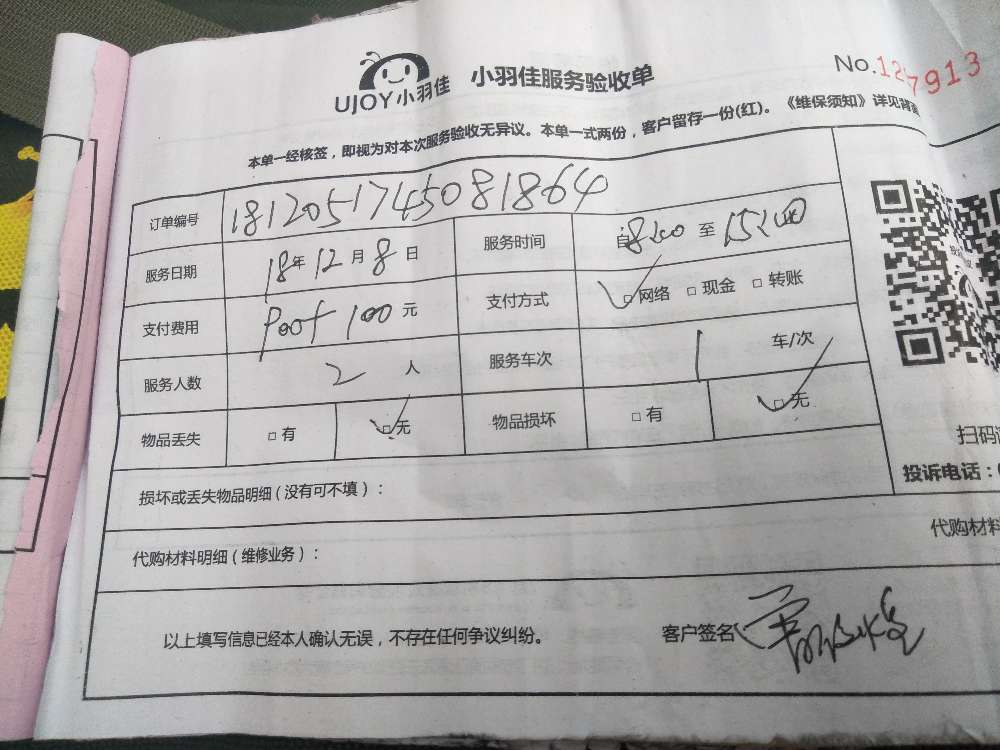 UJOY小羽佳 小羽佳服务验收单 No.127913
本单一经核签，即视为对本次服务验收无异议。本单一式两份，客户留存一份(红)。《维保须知》详见背面
订单编号 1812051745081864
服务日期 18年12月8日 服务时间 自8:00至15:00
支付费用 100元 支付方式 □网络 □现金 □转账
服务人数 2人 服务车次 1车/次
物品丢失 □有 □无 物品损坏 □有 □无
扫码
投诉电话：
损坏或丢失物品明细（没有可不填）：
代购材料
代购材料明细（维修业务）：
以上填写信息已经本人确认无误，不存在任何争议纠纷。 客户签名